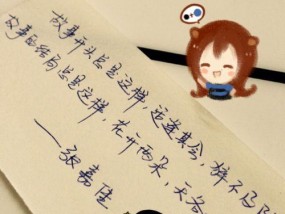 故事开头总是这样，适逢其会，猝不及
故事的结局总是这样，花开两朵，天各
——张嘉佳